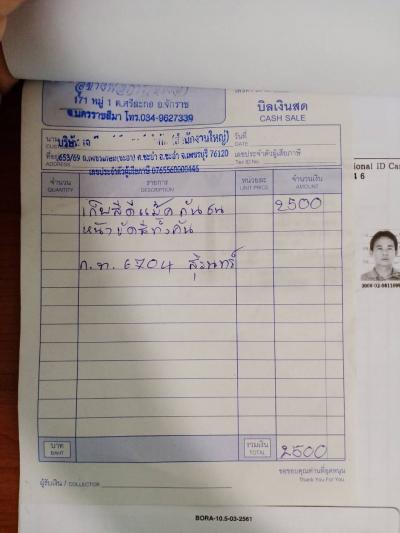 171 หมู่ 1 ต.ศรีละกอ อ.จักราช
จ.นครราชสีมา โทร.034-9627339
บิลเงินสด
CASH SALE
นาม
บริษัท เจ
สำนักงานใหญ่)
วันที่
DATE
ที่อยู่
ADDRESS
653/69 ถ.เพชรเกษม(ชะอำ) ต.ชะอำ อ.ชะอำ จ.เพชรบุรี 76120
เลขประจำตัวผู้เสียภาษี
Tax ID No.
เลขประจำตัวผู้เสียภาษี 0765560000445
จำนวน
QUANTITY
รายการ
DESCRIPTION
หน่วยละ
UNIT PRICE
จำนวนเงิน
AMOUNT
เก็บสีดีแม้ค กันชน
2500
หน้า ขัดสีทั้งคัน
ก.ท. 6704 สุรินทร์
บาท
BAHT
รวมเงิน
TOTAL
2500
ขอขอบคุณท่านที่อุดหนุน
Thank You For You
ผู้รับเงิน / COLLECTOR
BORA-10.5-03-2561
onal ID Ca
4 6